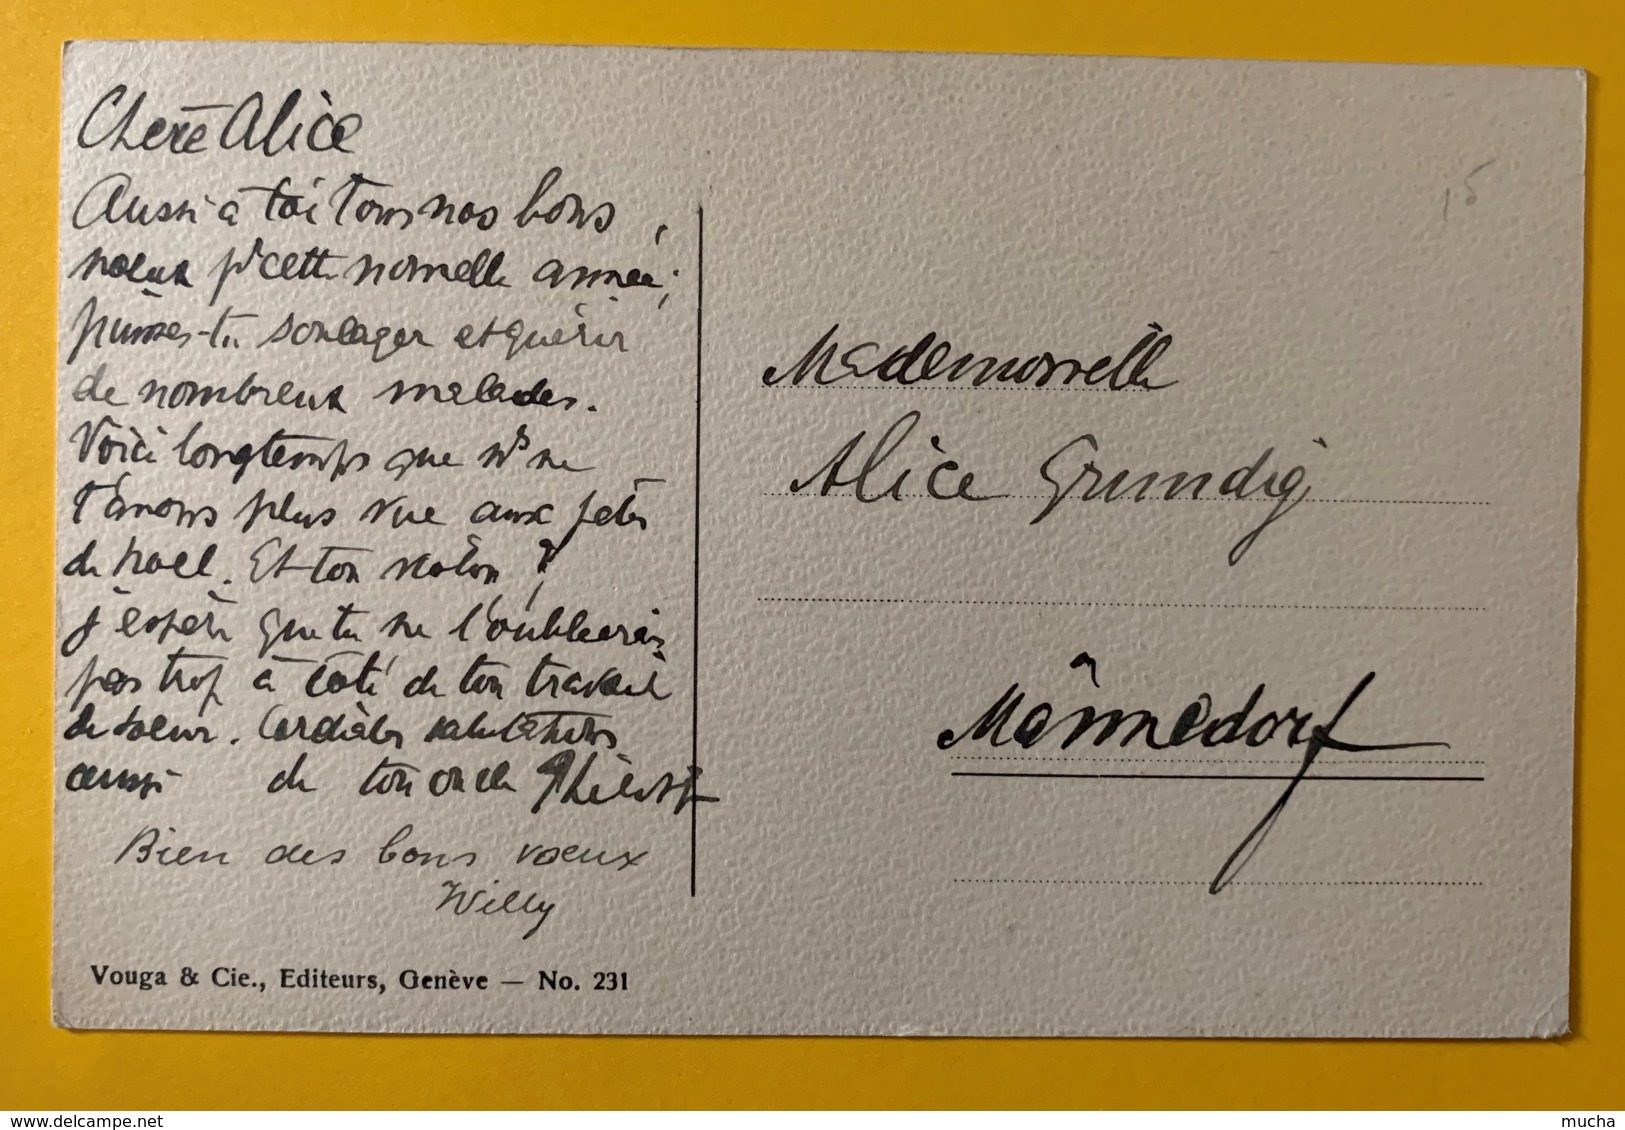 Chère Alice
Aussi à toi tous nos bons
voeux pr cette nouvelle année;
puisses-tu soulager et guérir
de nombreux malades.
Voici longtemps que ns ne
t'avons plus vue aux fêtes
de Noël. Et ton violon?
j'espère que tu ne l'oublieras
pas trop à côté de ton travail
de soeur. Cordiales salutations
aussi de ton oncle
Bien des bons voeux
Willy
Vouga & Cie., Editeurs, Genève — No. 231
15
Mademoiselle
Alice Grundig
Männedorf
www.delcampe.net
mucha